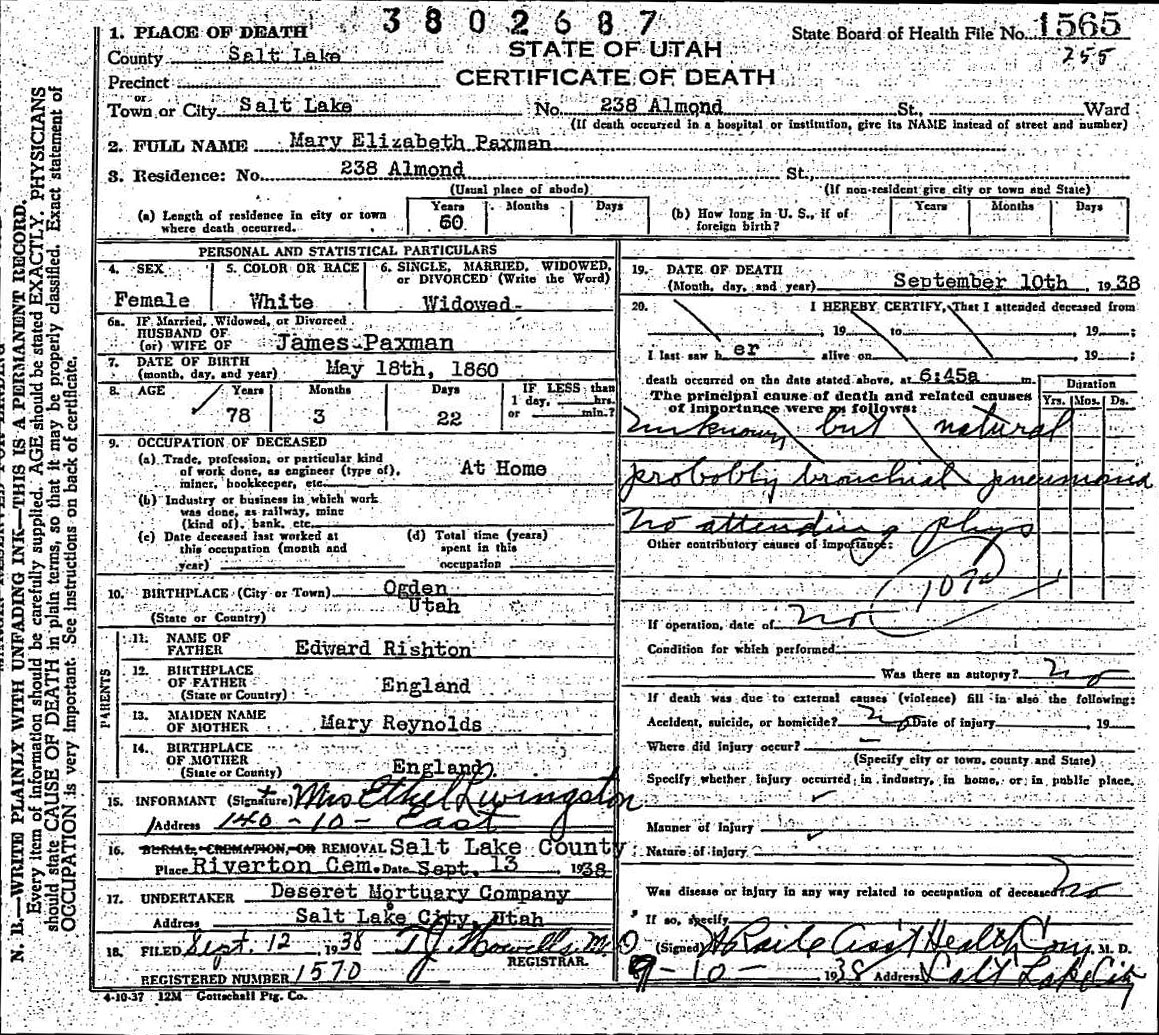 3802687
1. PLACE OF DEATH
State Board of Health File No. 1565
255
STATE OF UTAH
County Salt Lake
CERTIFICATE OF DEATH
Precinct
or
Town or City Salt Lake No. 238 Almond St., Ward
(If death occurred in a hospital or institution, give its NAME instead of street and number)
2. FULL NAME Mary Elizabeth Paxman
3. Residence: No. 238 Almond St.,
(Usual place of abode) (If non-resident give city or town and State)
(a) Length of residence in city or town where death occurred. Years 60 Months Days
(b) How long in U. S., if of foreign birth? Years Months Days
PERSONAL AND STATISTICAL PARTICULARS
4. SEX Female
5. COLOR OR RACE White
6. SINGLE, MARRIED, WIDOWED, or DIVORCED (Write the Word) Widowed
6a. IF Married, Widowed, or Divorced
HUSBAND OF
(or) WIFE OF James Paxman
7. DATE OF BIRTH
(month, day, and year) May 18th, 1860
8. AGE Years 78 Months 3 Days 22
IF LESS than
1 day, hrs.
or min.?
9. OCCUPATION OF DECEASED
(a) Trade, profession, or particular kind
of work done, as engineer (type of),
miner, bookkeeper, etc. At Home
(b) Industry or business in which work
was done, as railway, mine
(kind of), bank, etc.
(c) Date deceased last worked at
this occupation (month and
year)
(d) Total time (years)
spent in this
occupation
10. BIRTHPLACE (City or Town) Ogden
(State or Country) Utah
PARENTS
11. NAME OF
FATHER Edward Rishton
12. BIRTHPLACE
OF FATHER
(State or Country) England
13. MAIDEN NAME
OF MOTHER Mary Reynolds
14. BIRTHPLACE
OF MOTHER
(State or County) England
15. INFORMANT (Signature) Mrs Ethel Livingston
Address 140-10-East
16. BURIAL, CREMATION, OR REMOVAL Salt Lake County
Place Riverton Cem. Date Sept. 13, 1938
17. UNDERTAKER Deseret Mortuary Company
Address Salt Lake City, Utah
18. FILED Sept. 12 1938 T.J. Howells M.D
REGISTRAR.
REGISTERED NUMBER 1570
4-10-37 12M Gottschall Ptg. Co.
19. DATE OF DEATH
(Month, day, and year) September 10th, 1938
20. I HEREBY CERTIFY, That I attended deceased from
, 19 to , 19 ;
I last saw h er alive on , 19 ;
death occurred on the date stated above, at 6:45a m.
The principal cause of death and related causes
of importance were as follows:
Duration
Yrs. Mos. Ds.
Unknown but natural
probobly bronchial pneumonia
No attending phys
Other contributory causes of importance:
107a
If operation, date of no
Condition for which performed
Was there an autopsy? no
If death was due to external causes (violence) fill in also the following:
Accident, suicide, or homicide? no Date of injury 19
Where did injury occur?
(Specify city or town, county and State)
Specify whether injury occurred in industry, in home, or in public place.
Manner of Injury
Nature of injury
Was disease or injury in any way related to occupation of deceased? no
If so, specify
(Signed) Asst Health Com M. D.
9-10- 1938 Address Salt Lake City
N. B.—WRITE PLAINLY WITH UNFADING INK—THIS IS A PERMANENT RECORD.
Every item of information should be carefully supplied. AGE should be stated EXACTLY. PHYSICIANS
should state CAUSE OF DEATH in plain terms, so that it may be properly classified. Exact statement of
OCCUPATION is very important. See instructions on back of certificate.